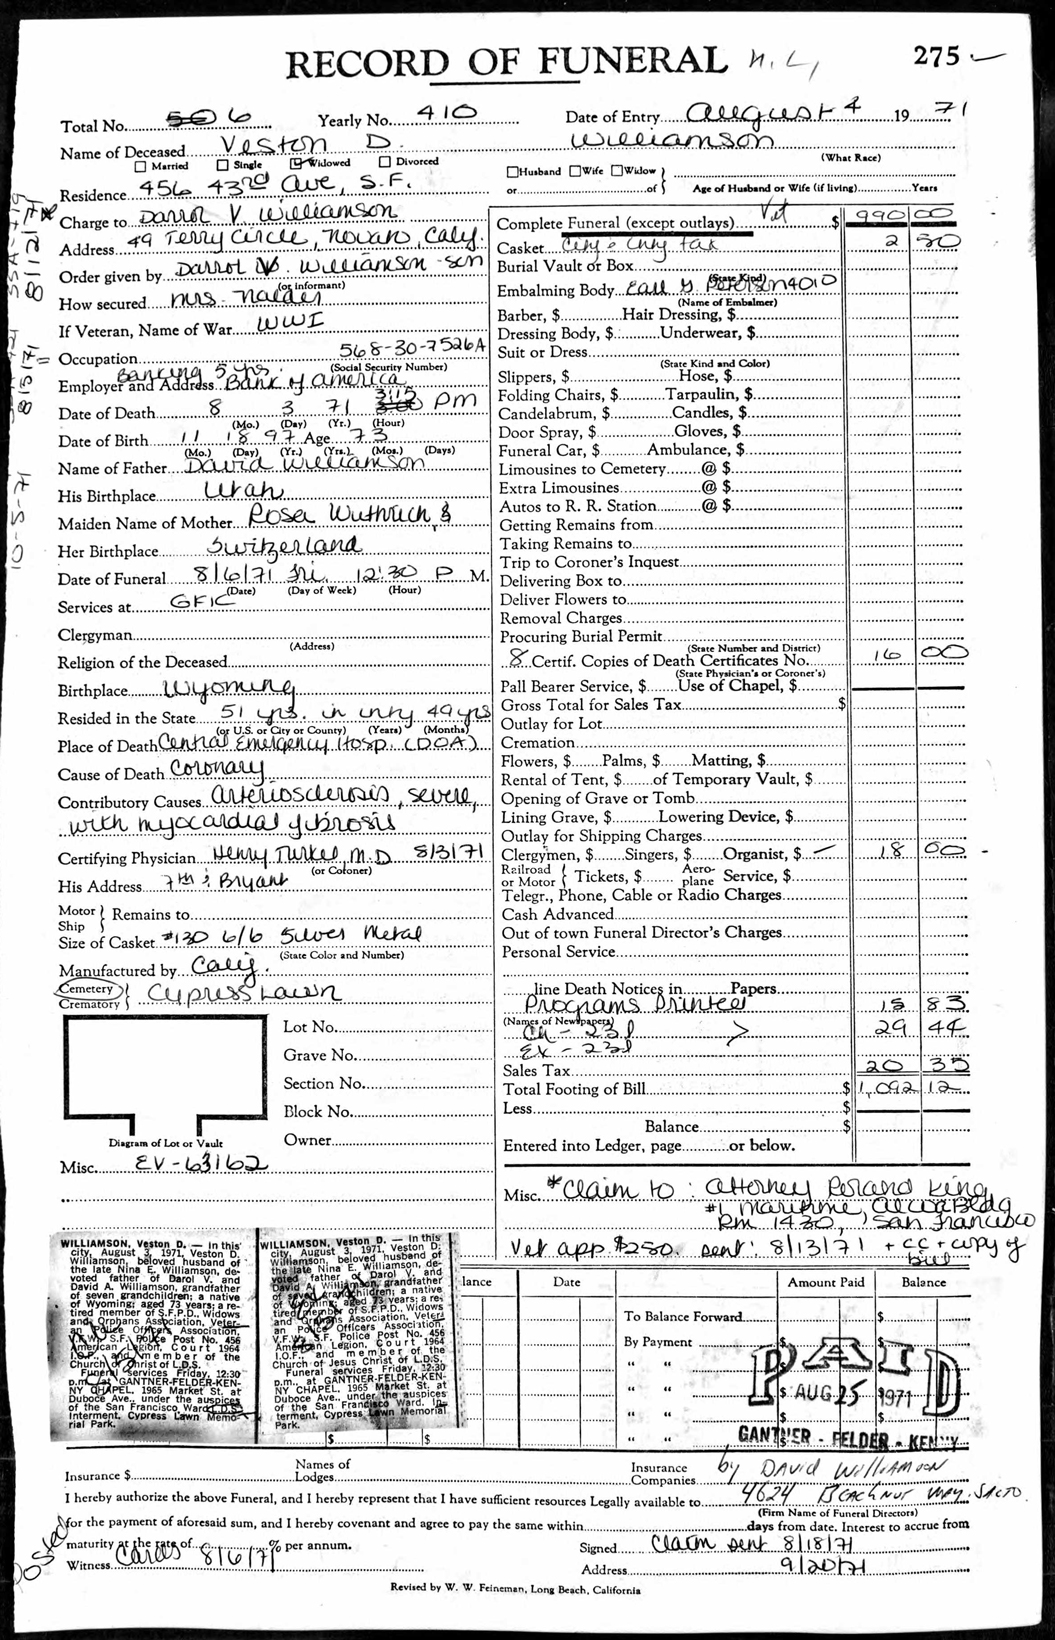 RECORD OF FUNERAL N. L,
275
Total No. 6 Yearly No. 410 Date of Entry August 4 19 71
Name of Deceased Veston D. Williamson
Married Single Widowed Divorced
(What Race)
Husband Wife Widow
or of Age of Husband or Wife (if living) Years
Residence 456 43rd Ave, S.F.
Charge to Darrol V. Williamson
Address 49 Terry Circle, Novato, Calif.
Order given by Darrol V. Williamson - son
(or informant)
How secured Mrs. Nalder
If Veteran, Name of War WWI
568-30-7526A
Occupation Banking 5 yrs.
(Social Security Number)
Employer and Address Bank of America
Date of Death 8 3 71 3:15 PM
(Mo.) (Day) (Yr.) (Hour)
Date of Birth 11 18 97 Age 73
(Mo.) (Day) (Yr.) (Yrs.) (Mos.) (Days)
Name of Father David Williamson
His Birthplace Utah
Maiden Name of Mother Rosa Wuthrich
Her Birthplace Switzerland
Date of Funeral 8/6/71 Fri. 12:30 P M.
(Date) (Day of Week) (Hour)
Services at GFK
Clergyman
(Address)
Religion of the Deceased
Birthplace Wyoming
Resided in the State 51 yrs. in cnty 49 yrs
(or U.S. or City or County) (Years) (Months)
Place of Death Central Emergency Hosp. (DOA)
Cause of Death Coronary
Contributory Causes arteriosclerosis, severe,
with myocardial fibrosis
Certifying Physician Henry Turkel, M.D 8/3/71
(or Coroner)
His Address 7th & Bryant
Motor Ship Remains to
Size of Casket #130 6/6 Silver Metal
(State Color and Number)
Manufactured by Calif.
Cemetery Crematory Cypress Lawn
Lot No.
Grave No.
Section No.
Block No.
Owner
Diagram of Lot or Vault
Misc. EV-63162
Complete Funeral (except outlays) Vet $ 990 00
Casket City & Cnty tax 2 50
Burial Vault or Box
(State Kind)
Embalming Body Earl G. Peterson 4010
(Name of Embalmer)
Barber, $ Hair Dressing, $
Dressing Body, $ Underwear, $
Suit or Dress
(State Kind and Color)
Slippers, $ Hose, $
Folding Chairs, $ Tarpaulin, $
Candelabrum, $ Candles, $
Door Spray, $ Gloves, $
Funeral Car, $ Ambulance, $
Limousines to Cemetery @ $
Extra Limousines @ $
Autos to R. R. Station @ $
Getting Remains from
Taking Remains to
Trip to Coroner's Inquest
Delivering Box to
Deliver Flowers to
Removal Charges
Procuring Burial Permit
(State Number and District)
8 Certif. Copies of Death Certificates No. 16 00
(State Physician's or Coroner's)
Pall Bearer Service, $ Use of Chapel, $
Gross Total for Sales Tax $
Outlay for Lot
Cremation
Flowers, $ Palms, $ Matting, $
Rental of Tent, $ of Temporary Vault, $
Opening of Grave or Tomb
Lining Grave, $ Lowering Device, $
Outlay for Shipping Charges
Clergymen, $ Singers, $ Organist, $ 18 00
Railroad or Motor Tickets, $ Aeroplane Service, $
Telegr., Phone, Cable or Radio Charges
Cash Advanced
Out of town Funeral Director's Charges
Personal Service
line Death Notices in Papers
Programs Printed 15 83
(Names of Newspapers)
Ch - 23l 29 44
Ex - 23l
Sales Tax 20 35
Total Footing of Bill $ 1,092 12
Less $
Balance $
Entered into Ledger, page or below.
Misc. *Claim to: Attorney Roland King
#1 Maritime, Alcoa Bldg
Rm 1430, San Francisco
Vet app $250. sent: 8/13/71 + cc + copy of
bill
WILLIAMSON, Veston D. — In this
city, August 3, 1971, Veston D.
Williamson, beloved husband of
the late Nina E. Williamson, de-
voted father of Darol V. and
David A. Williamson, grandfather
of seven grandchildren; a native
of Wyoming; aged 73 years; a re-
tired member of S.F.P.D., Widows
and Orphans Association, Veter-
an Police Officers Association,
V.F.W., S.F. Police Post No. 456
American Legion, Court 1964
I.O.F., and member of the
Church of Christ of L.D.S.
Funeral services Friday, 12:30
p.m., at GANTNER-FELDER-KEN-
NY CHAPEL, 1965 Market St. at
Duboce Ave., under the auspices
of the San Francisco Ward L.D.S.
Interment, Cypress Lawn Memo-
rial Park.
WILLIAMSON, Veston D. — In this
city, August 3, 1971, Veston D.
Williamson, beloved husband of
the late Nina E. Williamson, de-
voted father of Darol V. and
David A. Williamson, grandfather
of seven grandchildren; a native
of Wyoming; aged 73 years; a re-
tired member of S.F.P.D., Widows
and Orphans Association, Veter-
an Police Officers Association,
V.F.W. S.F. Police Post No. 456
American Legion, Court 1964
I.O.F., and member of the
Church of Jesus Christ of L.D.S.
Funeral services Friday, 12:30
p.m., at GANTNER-FELDER-KEN-
NY CHAPEL, 1965 Market St. at
Duboce Ave., under the auspices
of the San Francisco Ward. In-
terment, Cypress Lawn Memorial
Park.
lance Date Amount Paid Balance
To Balance Forward $
By Payment
" " $
" "
" "
" "
PAID
AUG 25 1971
GANTNER - FELDER - KENNY
by David Williamson
Insurance $ Names of Lodges Insurance Companies
4624 Beachnut Way. Sacto
I hereby authorize the above Funeral, and I hereby represent that I have sufficient resources Legally available to
(Firm Name of Funeral Directors)
for the payment of aforesaid sum, and I hereby covenant and agree to pay the same within days from date. Interest to accrue from
maturity at the rate of % per annum.
Signed Claim sent 8/18/71
Witness Cards 8/6/71
Address 9/20/71
Posted
Revised by W. W. Feineman, Long Beach, California
10-5-71
8/12/71